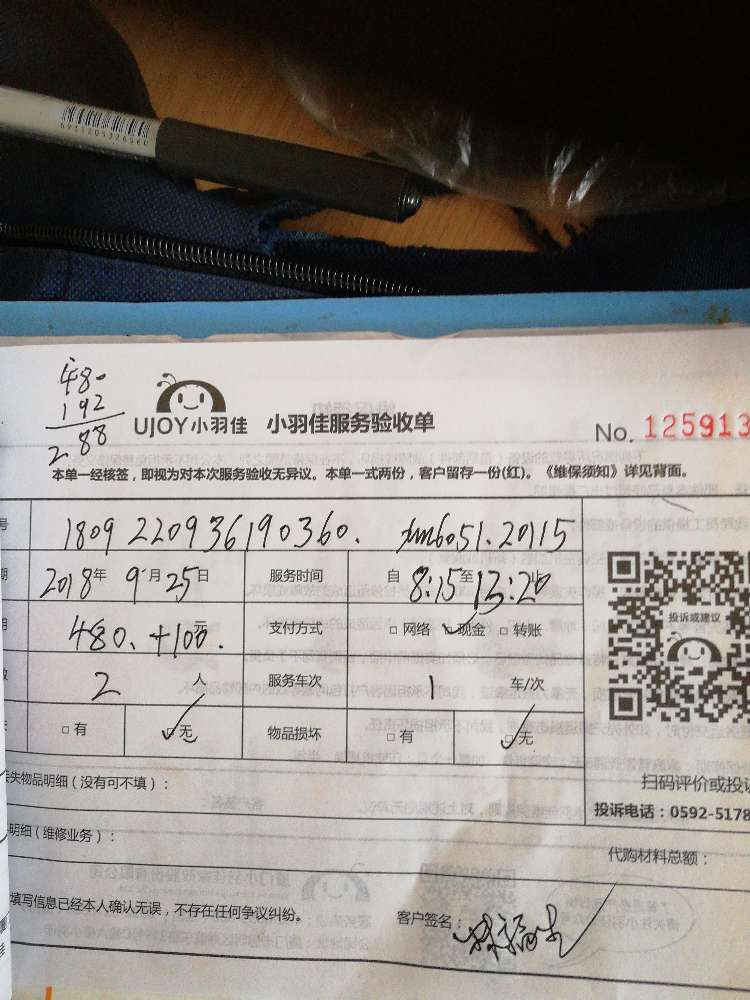 6931205326560
480
192
288
UJOY小羽佳 小羽佳服务验收单
No. 125913
本单一经核签,即视为对本次服务验收无异议。本单一式两份,客户留存一份(红)。《维保须知》详见背面。
号 1809220936190360.
期 2018年 9月25日 服务时间 自 8:15至13:20止
用 480.+100.元 支付方式 □网络 ☑现金 □转账
数 2 人 服务车次 1 车/次
□有 ☑无 物品损坏 □有 ☑无
投诉或建议
丢失物品明细(没有可不填):
扫码评价或投诉
投诉电话:0592-5178
明细(维修业务):
代购材料总额:
填写信息已经本人确认无误,不存在任何争议纠纷。
客户签名: